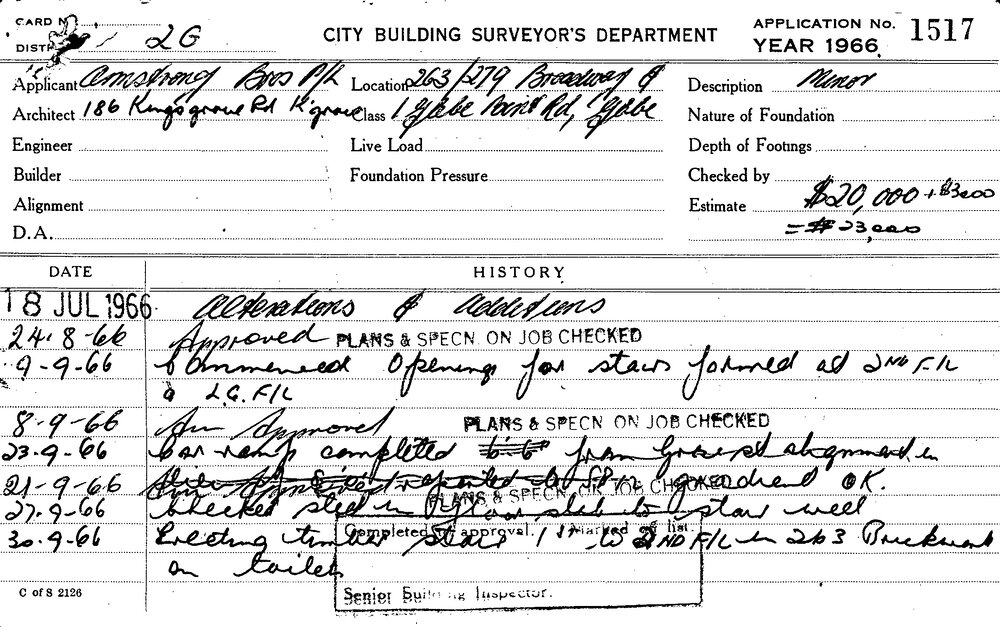 CARD No
DISTR 2G
CITY BUILDING SURVEYOR'S DEPARTMENT
APPLICATION No. 1517
YEAR 1966
Applicant Armstrong Bros P/L
Location 263/279 Broadway &
Description Minor
Architect 186 Kingsgrove Rd K'grove
Class 1 Glebe Point Rd, Glebe
Nature of Foundation
Engineer
Live Load
Depth of Footings
Builder
Foundation Pressure
Checked by
Alignment
Estimate $20,000 + $3000
D.A.
= $23,000
DATE
HISTORY
18 JUL 1966 Alterations & Additions
24.8-66 Approved PLANS & SPECN. ON JOB CHECKED
9-9-66 Commenced Opening for stairs formed at 2ND F/L
& L.G. F/L
8-9-66 Approved PLANS & SPECN ON JOB CHECKED
23-9-66 Car ramp completed from alignment in
21-9-66 OK. PLANS & SPECN. ON JOB CHECKED
27-9-66 Checked steel in floor slab to stair well
30-9-66 Erecting timber stair 1st to 2ND F/L in 263 Brickwork
on toilets
Completed approval. Marked off list.
Senior Building Inspector.
C of S 2126